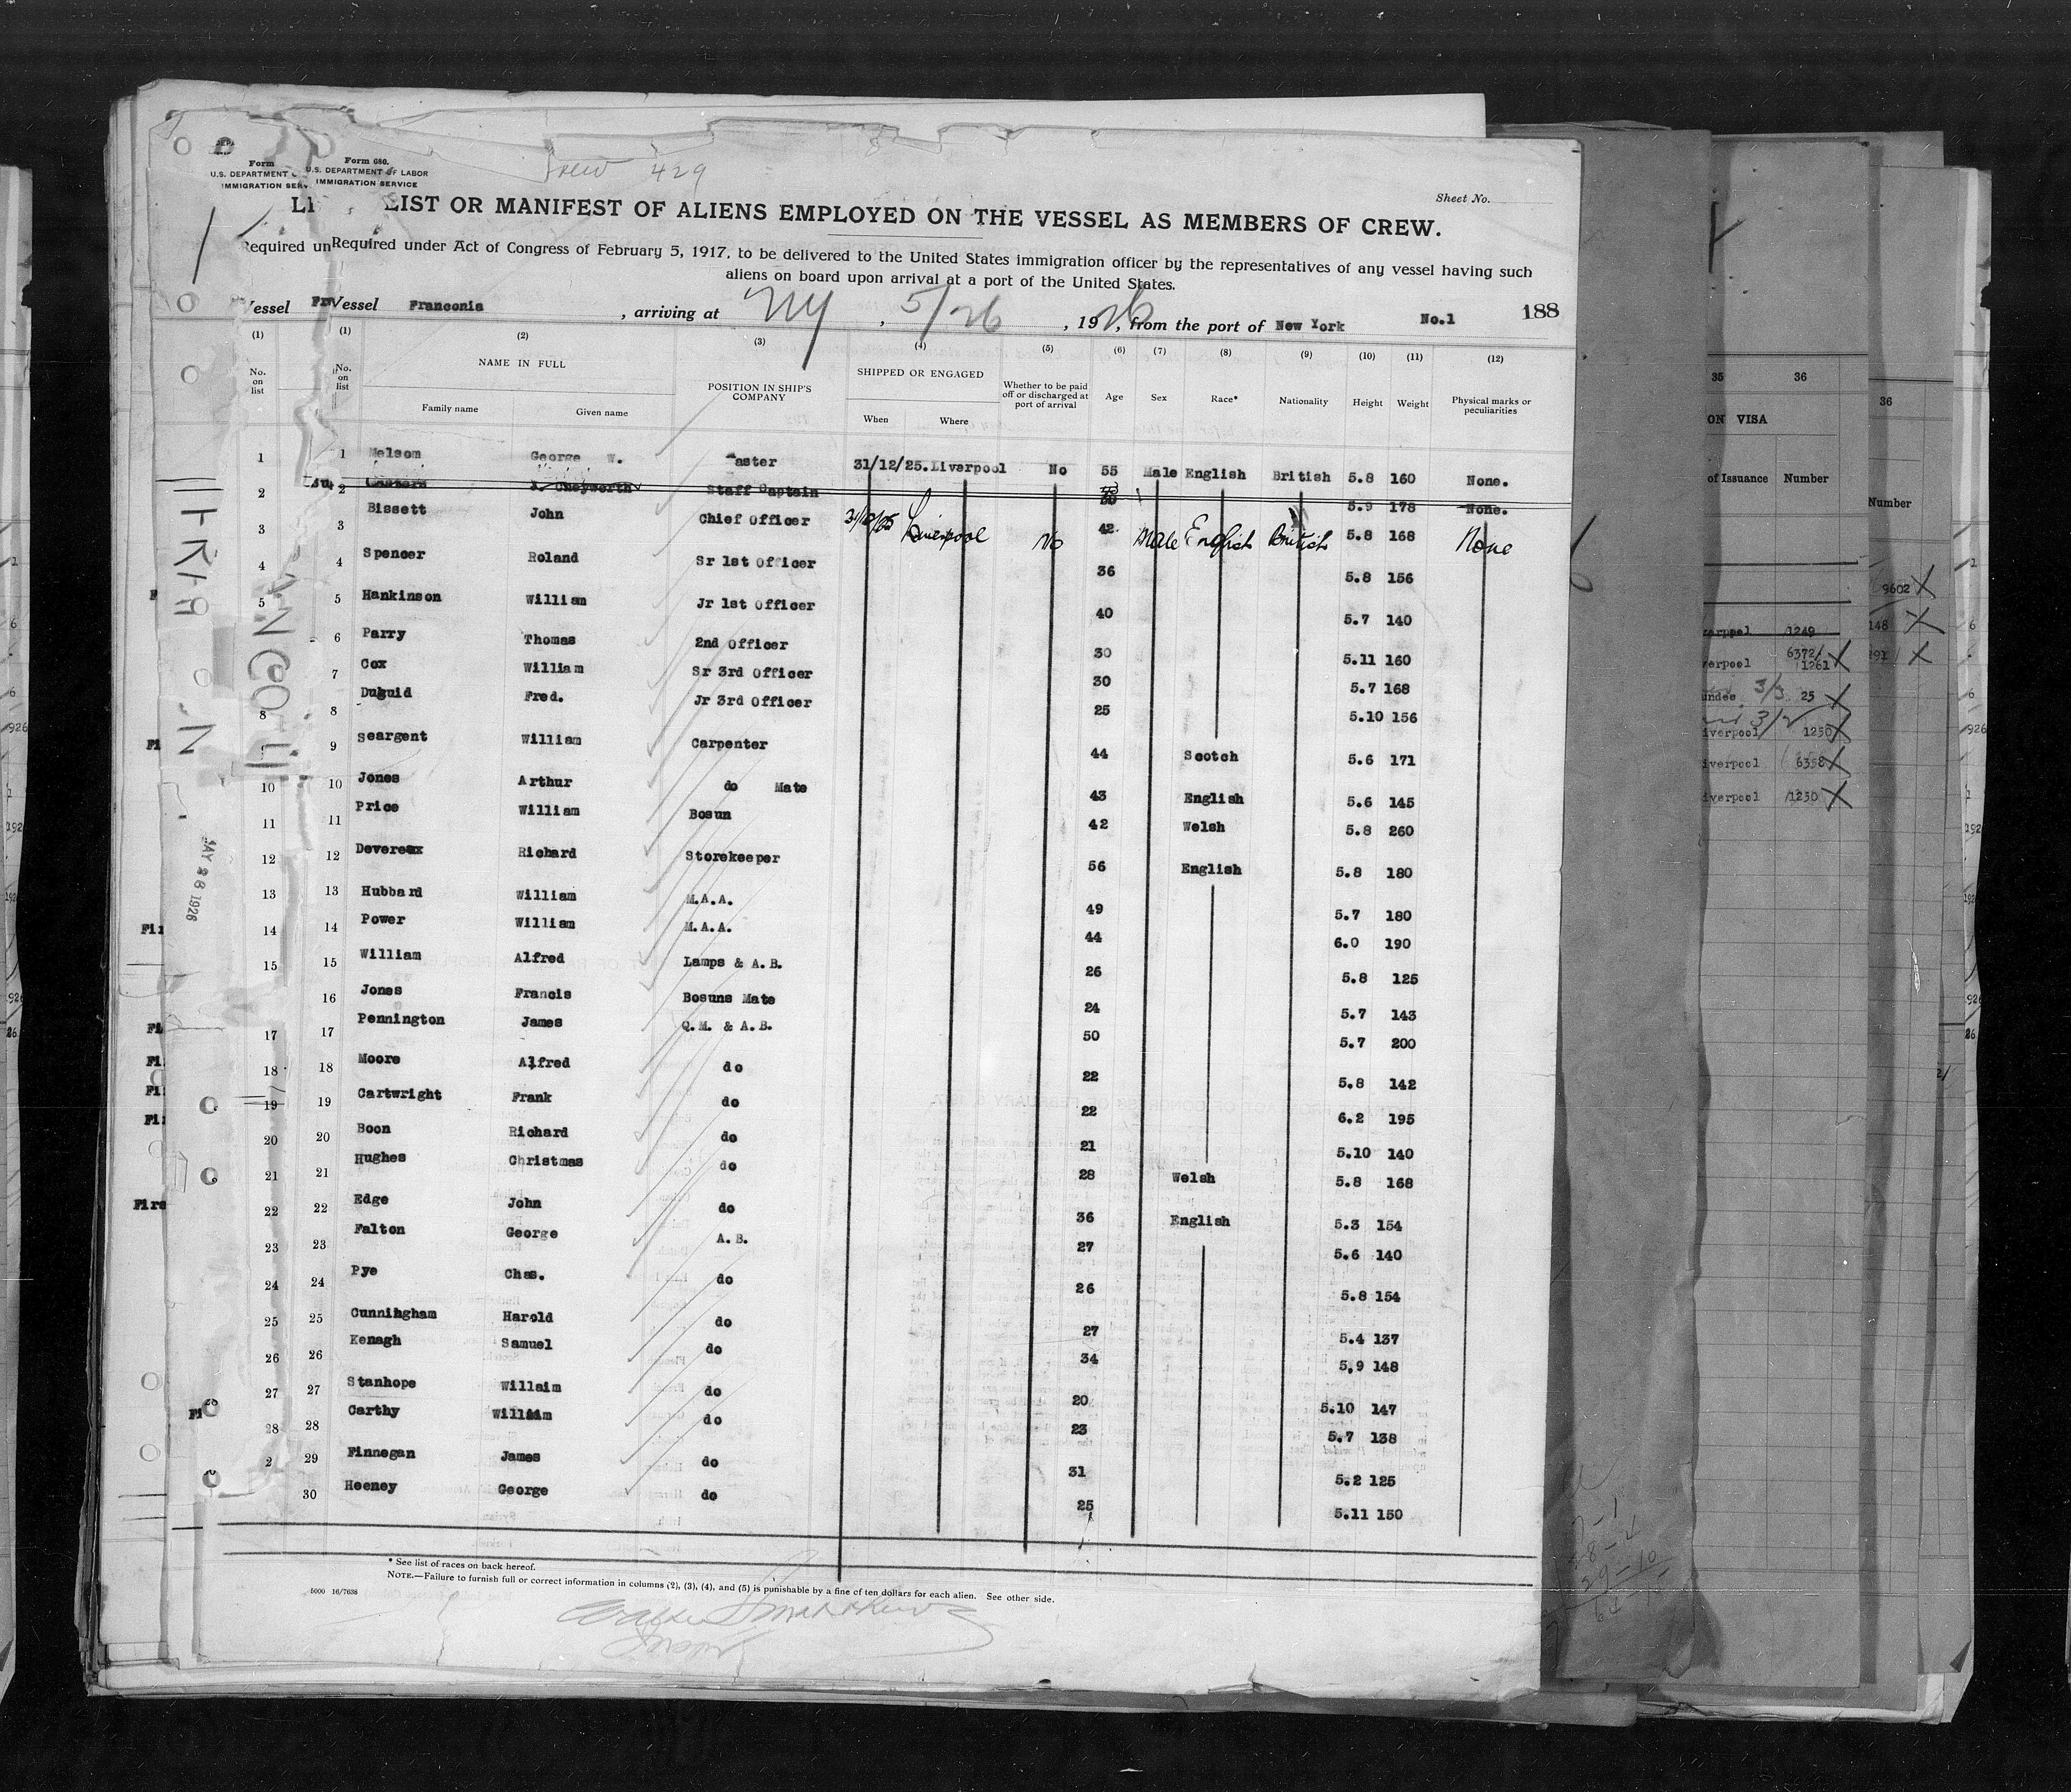 Form 680.
U.S. DEPARTMENT OF LABOR
IMMIGRATION SERVICE
Crew 429
Sheet No.
LIST OR MANIFEST OF ALIENS EMPLOYED ON THE VESSEL AS MEMBERS OF CREW.
Required under Act of Congress of February 5, 1917, to be delivered to the United States immigration officer by the representatives of any vessel having such
aliens on board upon arrival at a port of the United States.
Vessel Franconia, arriving at NY, 5/26, 1926, from the port of New York No.1 188
(1) (2) (3) (4) (5) (6) (7) (8) (9) (10) (11) (12)
No. on list NAME IN FULL Family name Given name POSITION IN SHIP'S COMPANY SHIPPED OR ENGAGED When Where Whether to be paid off or discharged at port of arrival Age Sex Race* Nationality Height Weight Physical marks or peculiarities
1 Melsom George W. Master 31/12/25. Liverpool No 55 Male English British 5.8 160 None.
2 Cheyworth Staff Captain 5.9 178 None.
3 Bissett John Chief Officer 31/12/25 Liverpool No 42 Male English British 5.8 168 None
4 Spencer Roland Sr 1st Officer 36 5.8 156
5 Hankinson William Jr 1st Officer 40 5.7 140
6 Parry Thomas 2nd Officer 30 5.11 160
7 Cox William Sr 3rd Officer 30 5.7 168
8 Duguid Fred. Jr 3rd Officer 25 5.10 156
9 Seargent William Carpenter 44 Scotch 5.6 171
10 Jones Arthur do Mate 43 English 5.6 145
11 Price William Bosun 42 Welsh 5.8 260
12 Devereux Richard Storekeeper 56 English 5.8 180
13 Hubbard William M.A.A. 49 5.7 180
14 Power William M.A.A. 44 6.0 190
15 William Alfred Lamps & A.B. 26 5.8 125
16 Jones Francis Bosuns Mate 24 5.7 143
17 Pennington James Q.M. & A.B. 50 5.7 200
18 Moore Alfred do 22 5.8 142
19 Cartwright Frank do 22 6.2 195
20 Boon Richard do 21 5.10 140
21 Hughes Christmas do 28 Welsh 5.8 168
22 Edge John do 36 English 5.3 154
23 Falton George A.B. 27 5.6 140
24 Pye Chas. do 26 5.8 154
25 Cunningham Harold do 27 5.4 137
26 Kenagh Samuel do 34 5.9 148
27 Stanhope Willaim do 20 5.10 147
28 Carthy William do 23 5.7 138
29 Finnegan James do 31 5.2 125
30 Heeney George do 25 5.11 150
* See list of races on back hereof.
NOTE.—Failure to furnish full or correct information in columns (2), (3), (4), and (5) is punishable by a fine of ten dollars for each alien. See other side.
5000 16/7636
MAY 26 1926
35 36
ON VISA
of Issuance Number
1249
verpool 6372/1261
undee 3/3 25
iverpool 1250
iverpool 6358
iverpool 1230
36
Number
9602
148
291